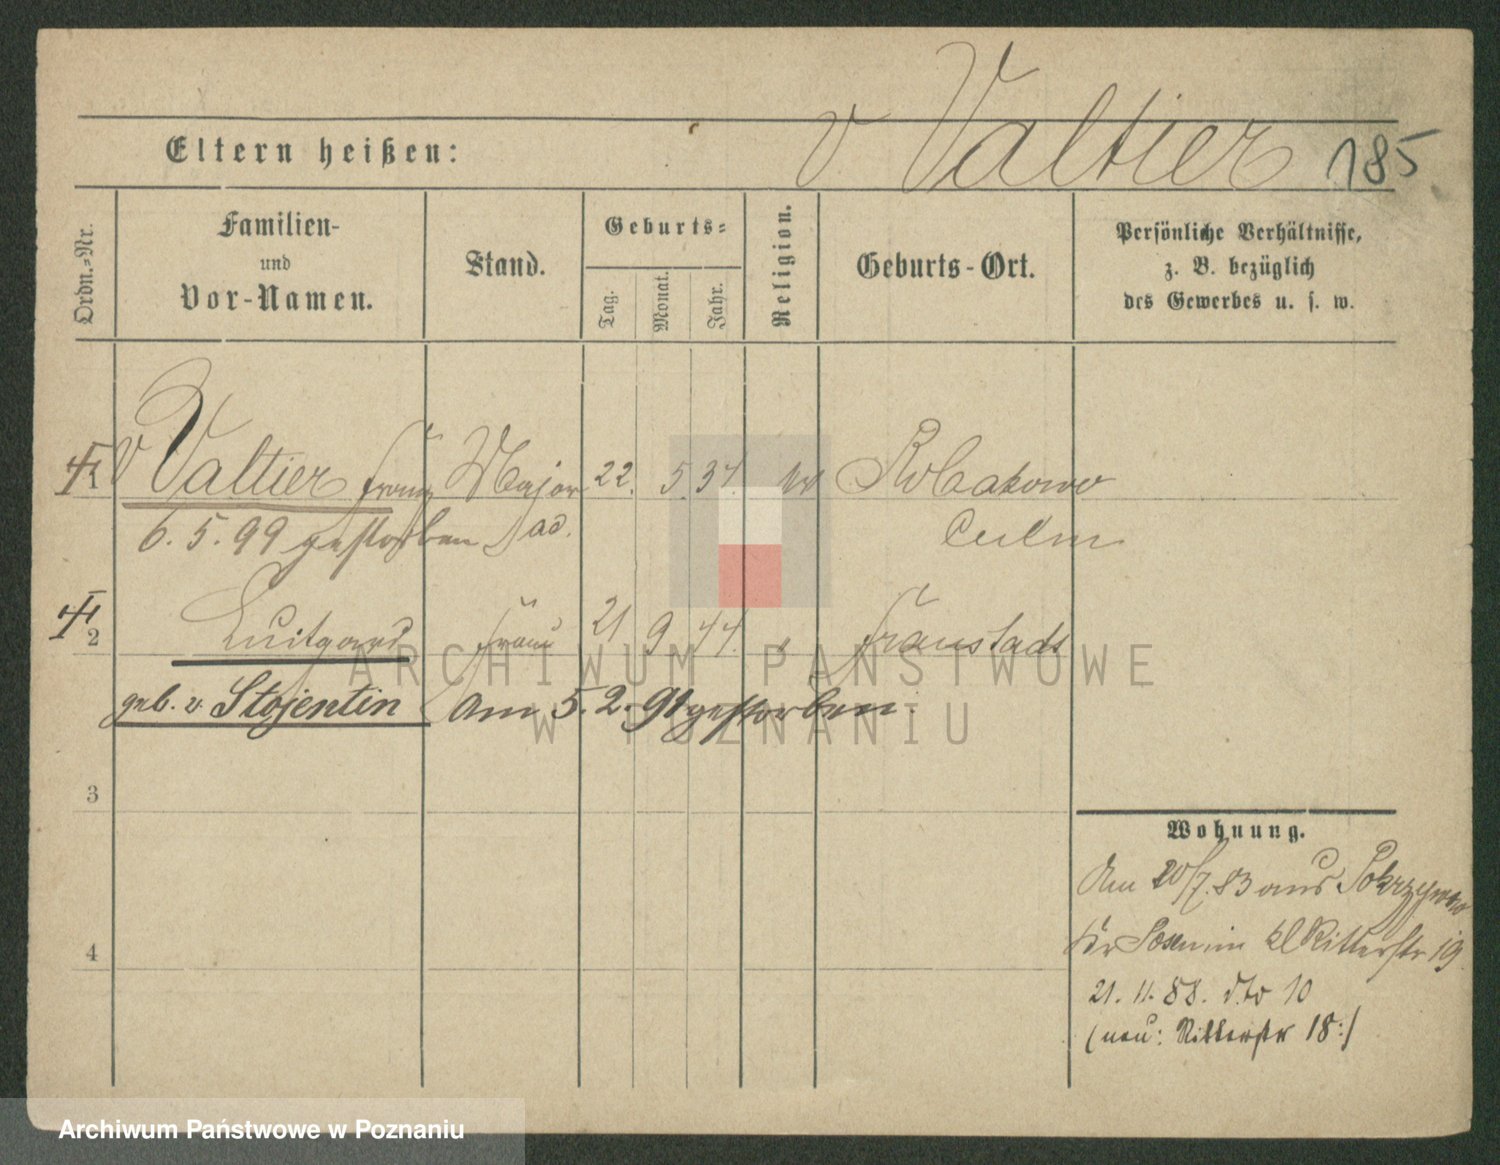 v Valtier 185
Eltern heißen:
Ordn.-Nr.
Familien-
und
Vor-Namen.
Stand.
Geburts-
Tag.
Monat.
Jahr.
Religion.
Geburts-Ort.
Persönliche Verhältnisse,
z. B. bezüglich
des Gewerbes u. s. w.
1 v Valtier Franz Major 22. 5. 37 Robakowo
6. 5. 99 gestorben ad. Culm
2 Luitgard Frau 21 9 44. " Fraustadt
geb. v. Stojentin am 5. 2. 91 gestorben.
3
4
Wohnung.
Am 20/7. 83 aus Pokrzywno
Kr Posen in kl Ritterstr 19.
21. 11. 88. dto 10
(neu: Ritterstr 18:)
ARCHIWUM PAŃSTWOWE
W POZNANIU
Archiwum Państwowe w Poznaniu